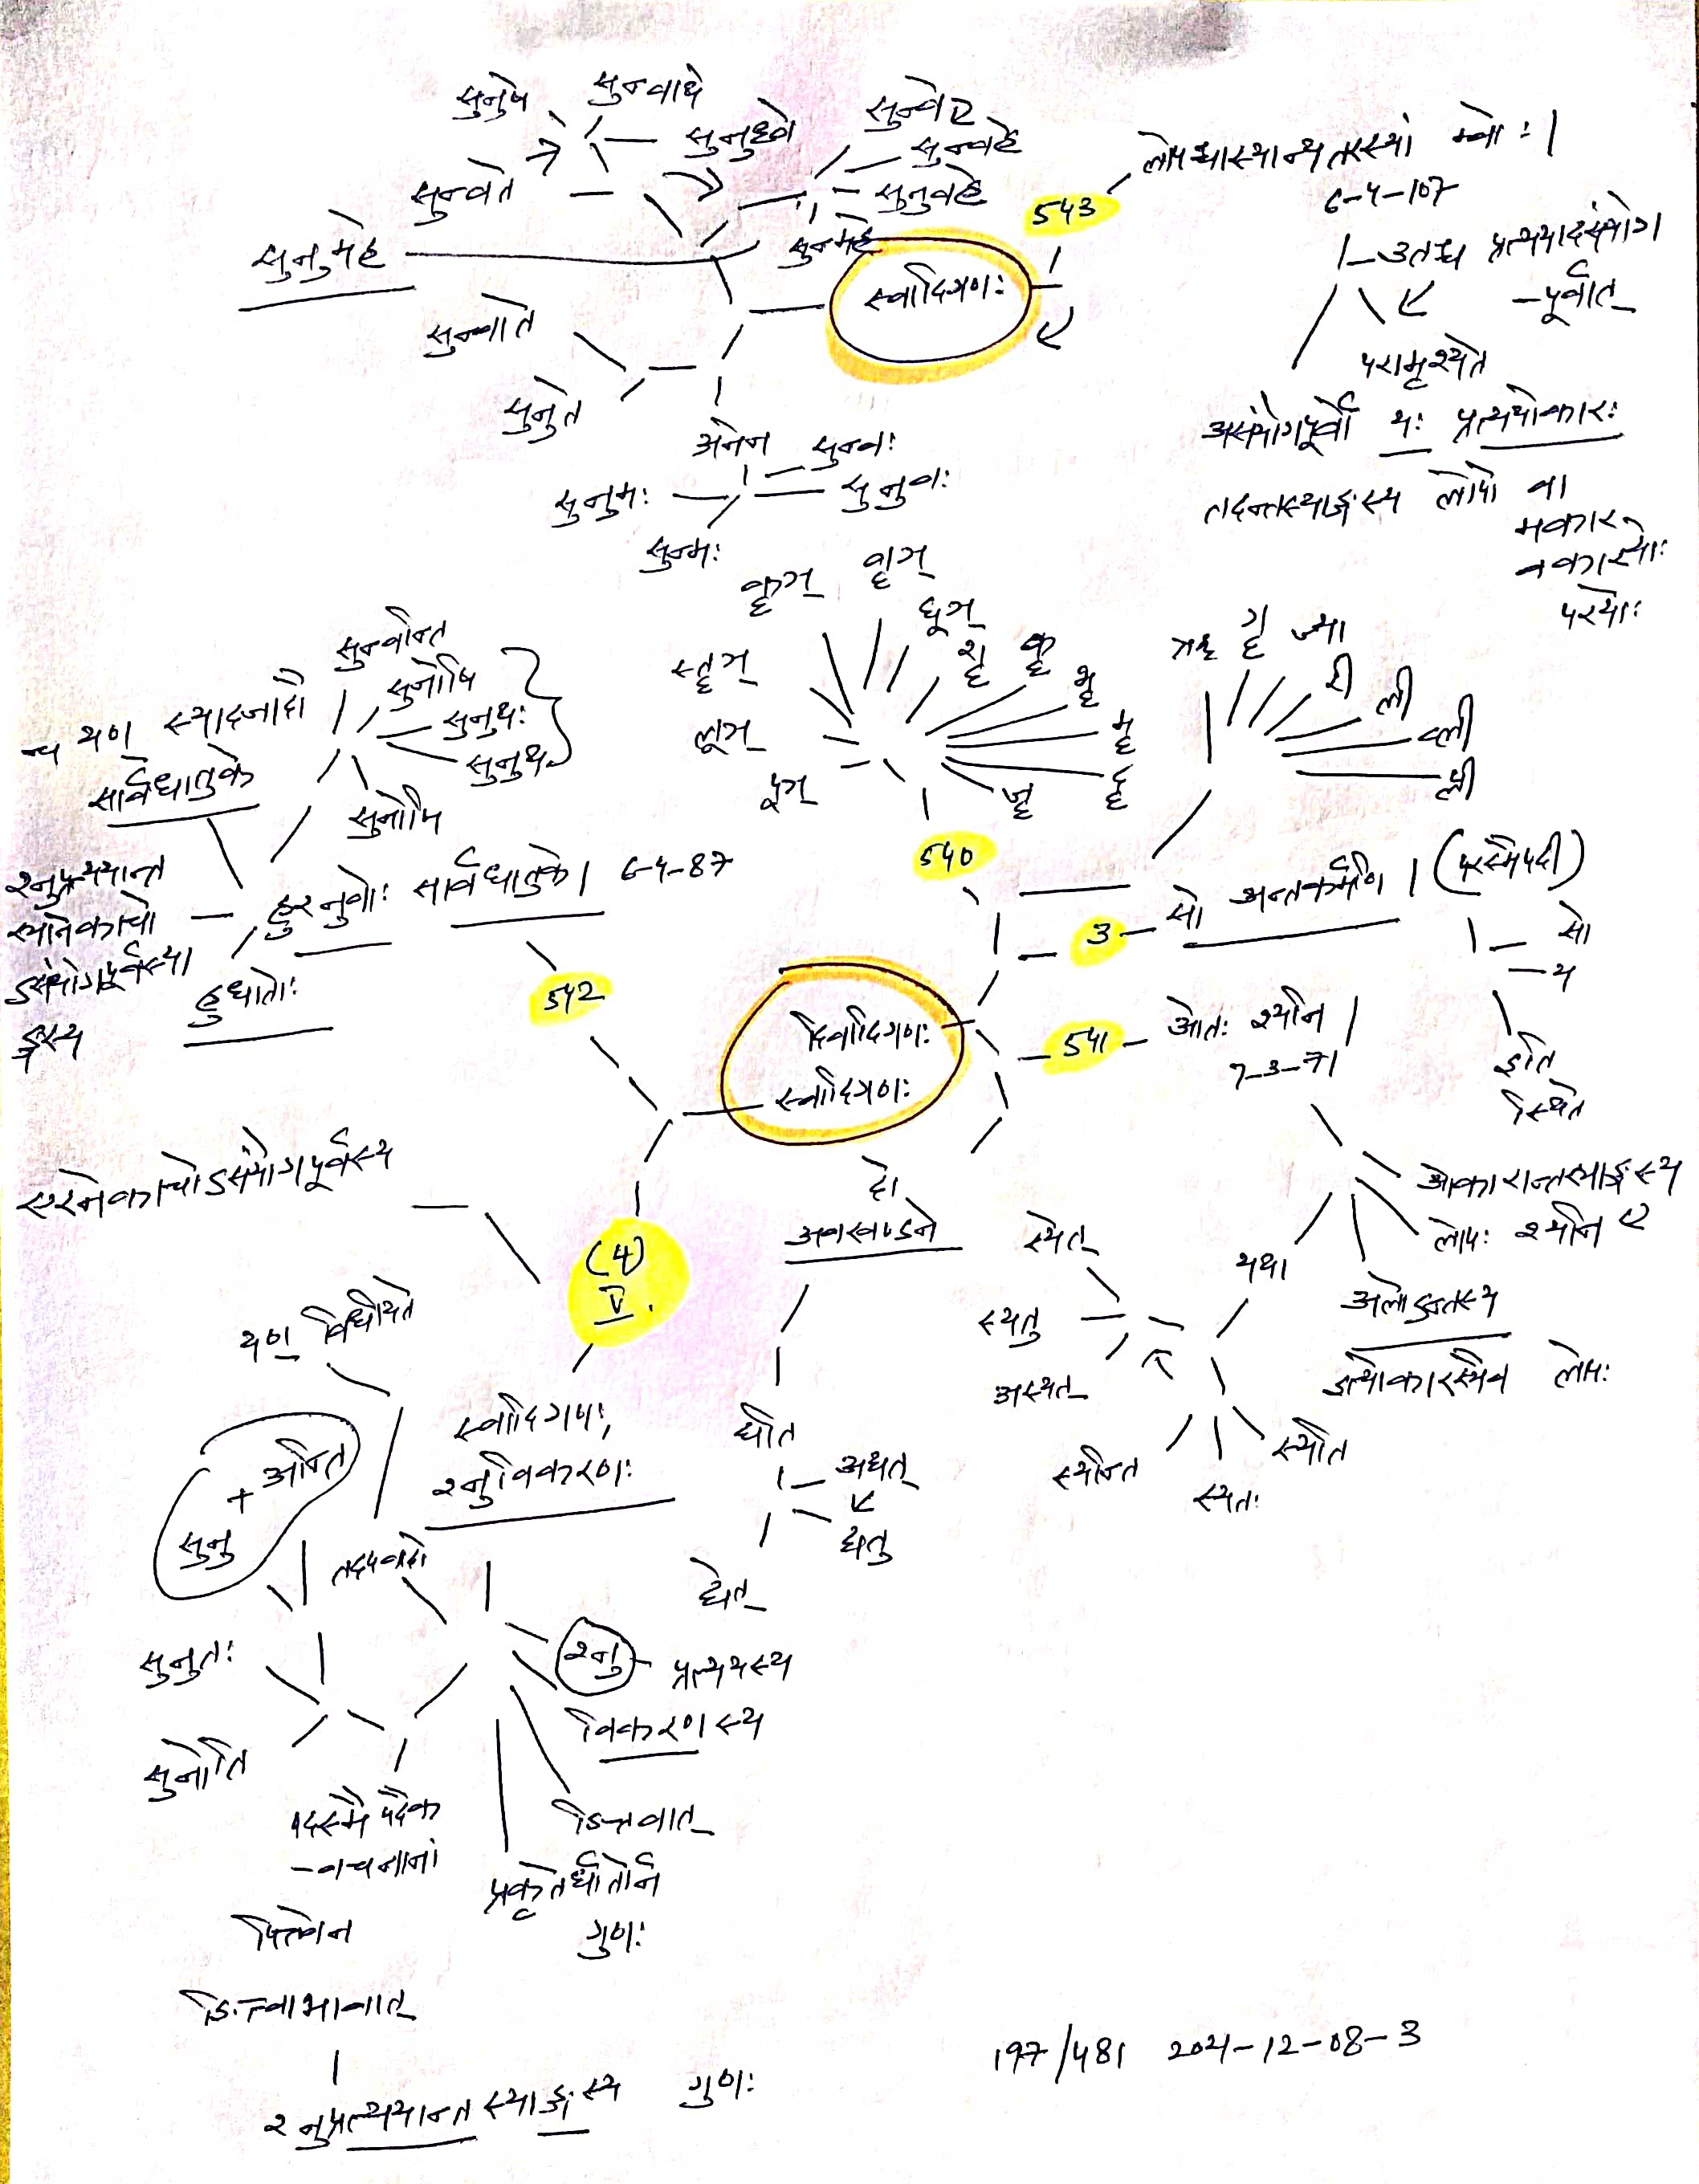 सुनुषे
सुन्वाथे
सुनुध्वे
सुन्वते
सुन्वे
सुन्वहे
सुनुवहे
सुन्महे
सुनुमहे
स्वादिगणः
543
लोपश्चास्यान्यतरस्यां म्वोः।
6-4-107
उतश्च प्रत्ययादसंयोग
-पूर्वात्
परामृश्यते
असंयोगपूर्वो यः प्रत्ययोकारः
तदन्तस्याङ्गस्य लोपो वा
मकार
वकारयोः
परयोः
सुन्वाते
सुनुते
अनेन
सुन्वः
सुनुवः
सुनुमः
सुन्मः
कॄञ्
वॄञ्
धूञ्
शॄ
स्तॄञ्
लूञ्
पूञ्
भॄ
मॄ
दॄ
जॄ
गॄ
ज्या
री
ली
व्ली
प्ली
540
सुन्वन्ति
सुनोषि
सुनुथः
सुनुथ
सुनोमि
यण् स्यादजादौ
सार्वधातुके
हुश्नुवोः सार्वधातुके। 6-4-87
श्नुप्रत्ययान्त
स्यानेकाचो
ऽसंयोगपूर्वस्या
ङ्गस्य
हुधातोः
542
3
सो अन्तकर्मणि। (परस्मैपदी)
सो
य
इति
स्थिते
दिवादिगणः
स्वादिगणः
541
ओतः श्यनि।
7-3-71
ओकारान्तस्याङ्गस्य
लोपः श्यनि
यथा
अलोऽन्तस्य
इत्योकारस्यैव लोपः
स्येत्
स्यतु
अस्यत्
स्यन्ति
स्यतः
स्यति
एरनेकाचोऽसंयोगपूर्वस्य
यण् विधीयते
(4)
V.
दो
अवखण्डने
द्यति
अद्यत्
द्यतु
द्येत्
स्वादिगणः,
श्नुविकरणः
सुनु + अन्ति
तदपवादो
सुनुतः
सुनोति
श्नु प्रत्ययस्य
विकरणस्य
ङित्त्वात्
प्रकृतेर्धातोर्न
गुणः
परस्मैपदैक
-वचनानां
पित्त्वेन
ङित्त्वाभावात्
श्नुप्रत्ययान्तस्याङ्गस्य गुणः
197/481 2021-12-08-3